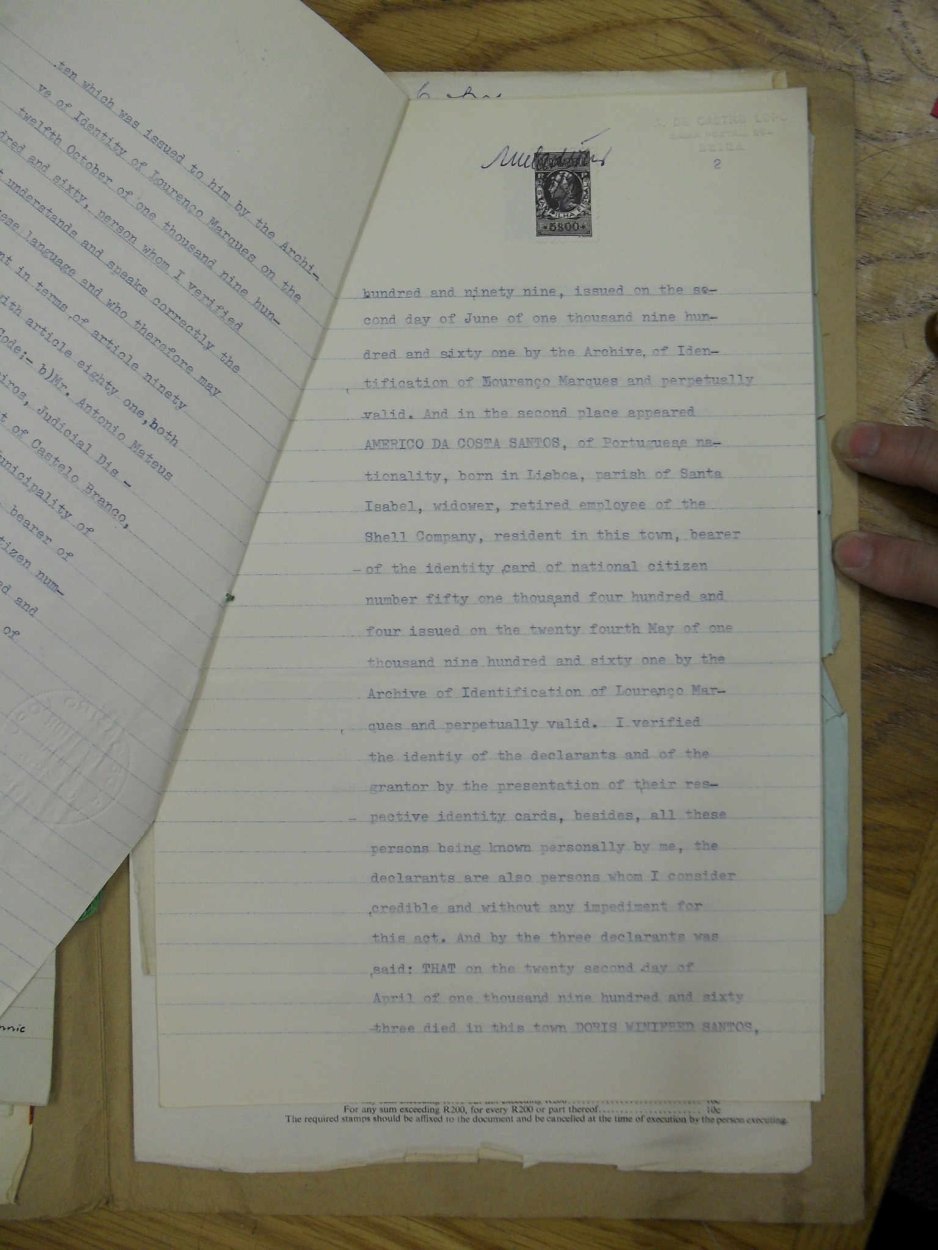 ten which was issued to him by the Archi-
ve of Identity of Lourenço Marques on the
twelfth October of one thousand nine hun-
dred and sixty, person whom I verified
understands and speaks correctly the
language and who therefore may
in terms of article ninety
ith article eighty one, both
ode:- b)Mr. Antonio Mateus
iros, Judicial Dis-
t of Castelo Branco,
unicipality of
bearer of
tizen num-
ed and
of
DE CASTRO LOPO
BEIRA
2
5$00
hundred and ninety nine, issued on the se-
cond day of June of one thousand nine hun-
dred and sixty one by the Archive of Iden-
tification of Lourenço Marques and perpetually
valid. And in the second place appeared
AMERICO DA COSTA SANTOS, of Portuguese na-
tionality, born in Lisboa, parish of Santa
Isabel, widower, retired employee of the
Shell Company, resident in this town, bearer
-of the identity card of national citizen
number fifty one thousand four hundred and
four issued on the twenty fourth May of one
thousand nine hundred and sixty one by the
Archive of Identification of Lourenço Mar-
ques and perpetually valid. I verified
the identiy of the declarants and of the
grantor by the presentation of their res-
- pective identity cards, besides, all these
persons being known personally by me, the
declarants are also persons whom I consider
credible and without any impediment for
this act. And by the three declarants was
said: THAT on the twenty second day of
April of one thousand nine hundred and sixty
three died in this town DORIS WINIFRED SANTOS,
For any sum exceeding R200, for every R200 or part thereof........................ 10c
The required stamps should be affixed to the document and be cancelled at the time of execution by the person executing.